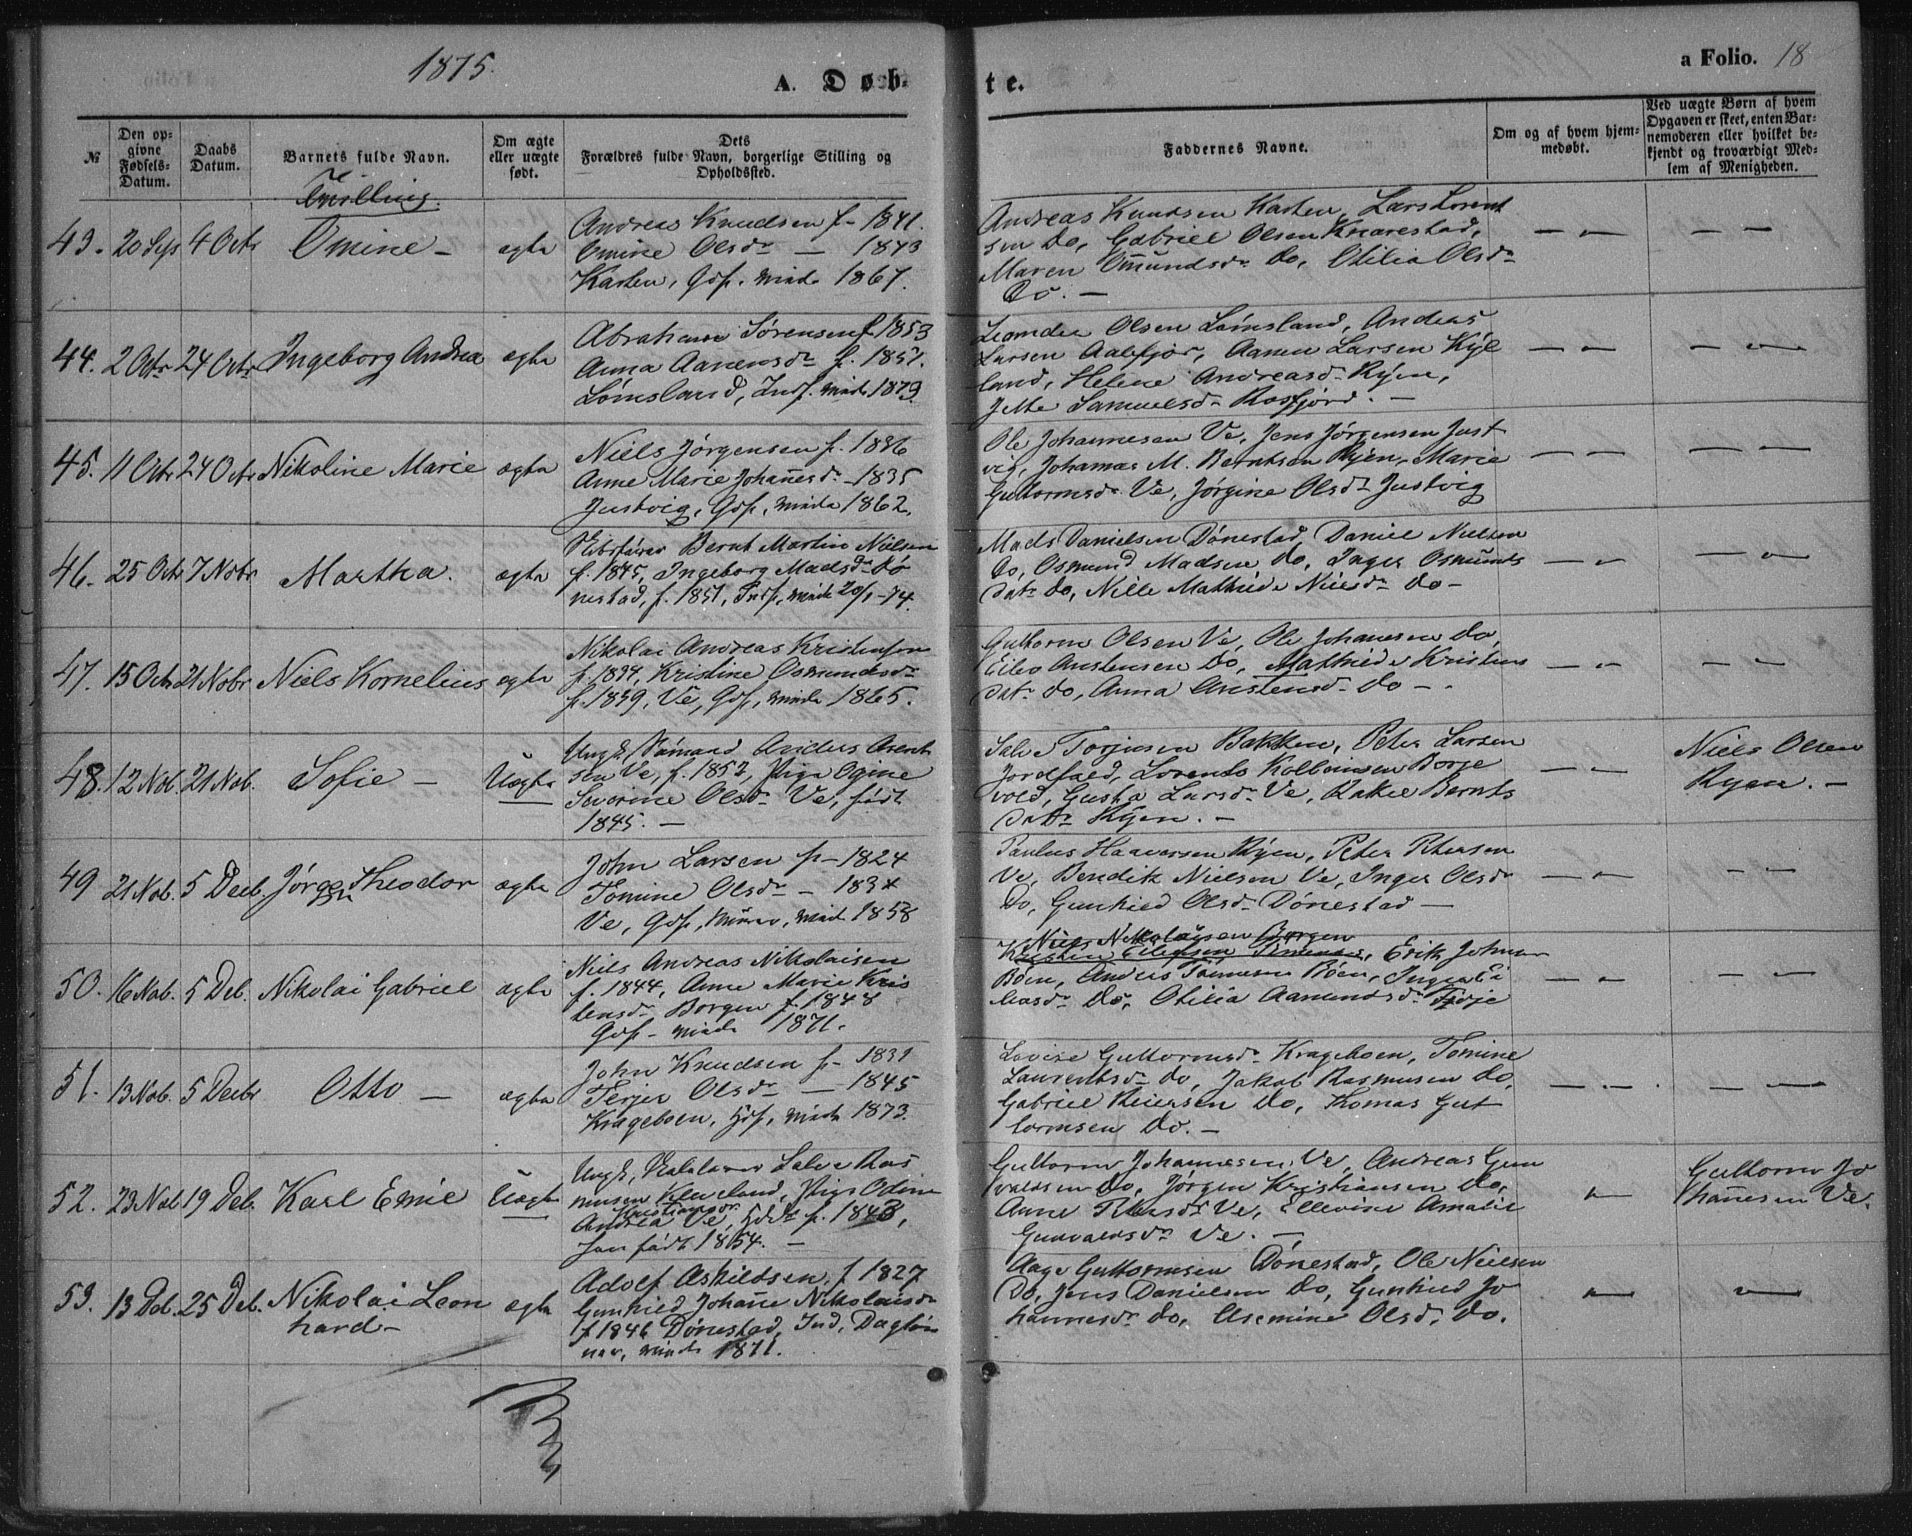 1875.
A. Døb-
te.
a Folio. 18
№
Den op-
givne
Fødsels-
Datum.
Daabs
Datum.
Barnets fulde Navn.
Om ægte
eller uægte
født.
Dets
Forældres fulde Navn, borgerlige Stilling og
Opholdssted.
Faddernes Navne.
Om og af hvem hjem-
medøbt.
Ved uægte Børn af hvem
Opgaven er skeet, enten Bar-
nemoderen eller hvilket be-
kjendt og troværdigt Med-
lem af Menigheden.
Tvilling.
43. 20 Sep 4 Octr Omine – ægte
Andreas Knudsen f – 1841.
Omine Olsdr — 1843
Kasten, Gdf. viede 1867.
Andreas Knudsen Kasten, Lars Lorent
sen Do, Gabriel Olsen Knarestad,
Maren Omundsdr do, Otilia Olsdr
Do. –
44. 2 Octr 24 Octr Ingeborg Andrea ægte
Abraham Sørensen f. 1853
Anna Aanensdr f. 1851.
Lømsland, Indf. viede 1873.
Olsen Lømsland, Andreas
Larsen Aabfjor, Aanen Larsen Kyl
land, Helene Andreasd. Ryen,
Jette Samuelsd. Rosfjord. –
45. 11 Octr 24 Octr Nikoline Marie ægte
Niels Jørgensen f. 1836
Anne Marie Johañesdr – 1835
Justvig, Gdf, viede 1862.
Ole Johannesen Ve, Jens Jørgensen Just
vig, Johannes M. Berntsen Ryen, Marie
Guttormsdr Ve, Jørgine Olsdr Justvig
46. 25 Octr 7 Nobr Martha. ægte
Bernt Martin Nielsen
f. 1845, Ingeborg Madsdr Dø
nestad, f. 1851, Indf, viede 20/1 – 74.
Mads Danielsen Dønestad, Daniel Nielsen
Do, Osmund Madsen Do, Inger Osmunds
datr do, Nille Mathilde Nielsdr do –
47. 15 Octr 21 Nobr Niels Kornelius ægte
Nikolai Andreas Kristensen
f. 1834, Kristine Osmundsdr
f. 1839, Ve, Gdf, viede 1865.
Guttorm Olsen Ve, Ole Johanesen do,
Eilev Anstensen Do, Mathilde Kristens
datr do, Anna Anstensdr do –
48. 12 Nob. 21 Nob. Sofie – Uægte
Ungk, Sømand, Anders Arent
sen Ve, f. 1852, Pige Ogine
Severine Olsdr Ve, født
1845. –
Salve Torjusen Bakken, Peter Larsen
Lorents Kolbeinsen Borge
vold, Gusta Larsdr Ve, Rakel Bernts
datr Ryen. –
Niels Olsen
Ryen. –
49 21 Nob. 5 Decb. Jørgen Theodor ægte
John Larsen f – 1824
Tomine Olsdr – 1834
Ve, Gdf, Murer, viede 1858
Paulus Haaversen Ryen, Peter Petersen
Ve, Bendik Nielsen Ve, Inger Olsdr
Do, Gunhild Olsdr Dønestad —
50. 16 Nob. 5 Deb. Nikolai Gabriel ægte
Niels Andreas Nikolaisen
f. 1844, Anne Marie Kris
tensdr Borgen f. 1848
Gdf – viede 1871.
Niels Nikolaisen Borgen
Kristen Eilevsen, Erik Johnsen
Bøen, Anders Tønnesen Bøen, Inger Ei
levsdr Do, Otilia Aamundsdr
51. 13 Nob. 5 Decbr Otto – ægte
John Knudsen f – 1831
Terjer Olsdr — 1845
Krageboen, Gdf, viede 1873.
Lovise Guttormsdr Krageboen, Tomine
Laurentsdr do, Jakob Rasmusen do,
Gabriel Reiersen Do, Thomas Gut
tormsen do. –
52. 23 Nob 19 Deb. Karl Emil Uægte
Ungk, Salve Ras
musen Kleveland, Pige Odine
Kristiansdr
Andrea Ve, f. 1848,
født 1854. –
Guttorm Johannesen Ve, Andreas Gun
valdsen do, Jørgen Kristiansen Do,
Anne Ve, Ellevine Amalie
Gunvaldsdr Ve. –
Guttorm Jo
hañesen Ve.
53. 13 Deb. 25 Deb. Nikolai Leon
hard – ægte
Adolf Askildsen, f 1827
Gunhild Johañe Nikolaisdr
f 1846 Dønestad, Ind, Dagløn
ner, viede 1871.
Aage Guttormsen Dønestad, Ole Nielsen
Do, Jens Danielsen Do, Gunhild Jo
hannesdr do, Asemine Olsd. do.